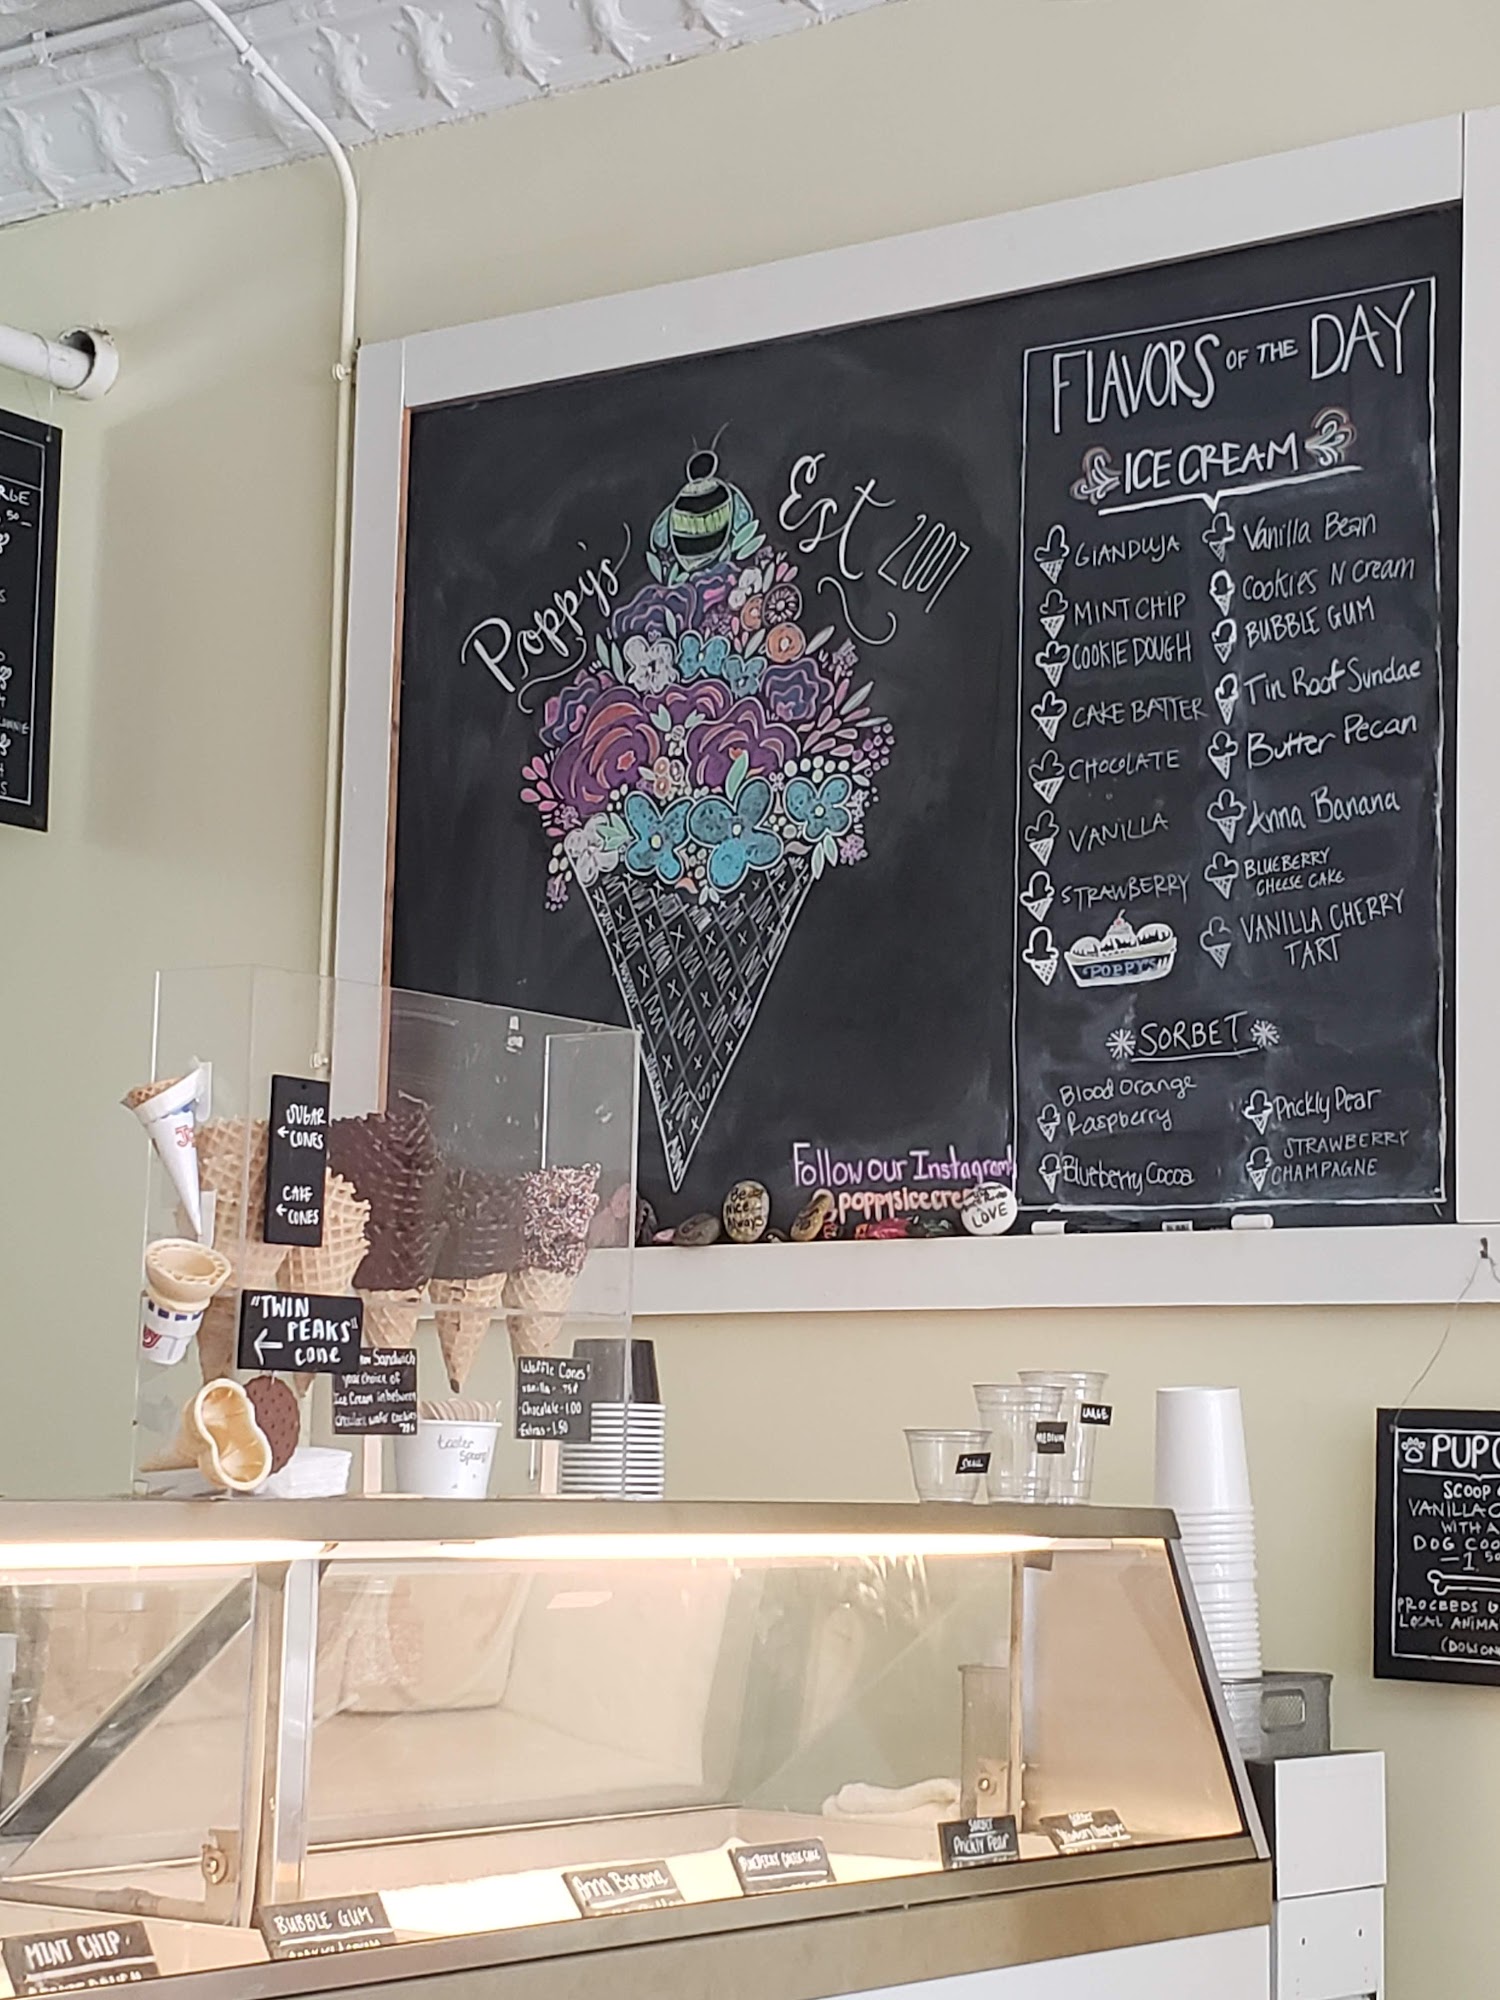 Poppy's
Est 2007
FLAVORS OF THE DAY
ICE CREAM
GIANDUJA
MINT CHIP
COOKIE DOUGH
CAKE BATTER
CHOCOLATE
VANILLA
STRAWBERRY
POPPY'S
Vanilla Bean
Cookies N Cream
BUBBLE GUM
Tin Roof Sundae
Butter Pecan
Anna Banana
BLUEBERRY
CHEESE CAKE
VANILLA CHERRY
TART
SORBET
Blood Orange
Raspberry
Blueberry Cocoa
Prickly Pear
STRAWBERRY
CHAMPAGNE
Follow our Instagram
@poppysicecre
Be
Nice
Always
LOVE
SUGAR
← CONES
CAKE
← CONES
"TWIN
PEAKS"
← cone
Sandwich
your choice of
Ice Cream inbetween
chocolate wafer cookies
Waffle Cones!
vanilla - .75¢
Chocolate - 1.00
Extras - 1.50
taster
spoons
SMALL
MEDIUM
LARGE
PUP
SCOOP
VANILLA
WITH A
DOG COO
— 1.50
PROCEEDS
LOCAL ANIMA
MINT CHIP
BUBBLE GUM
Anna Banana
BLUEBERRY CHEESE CAKE
SORBET
Prickly Pear